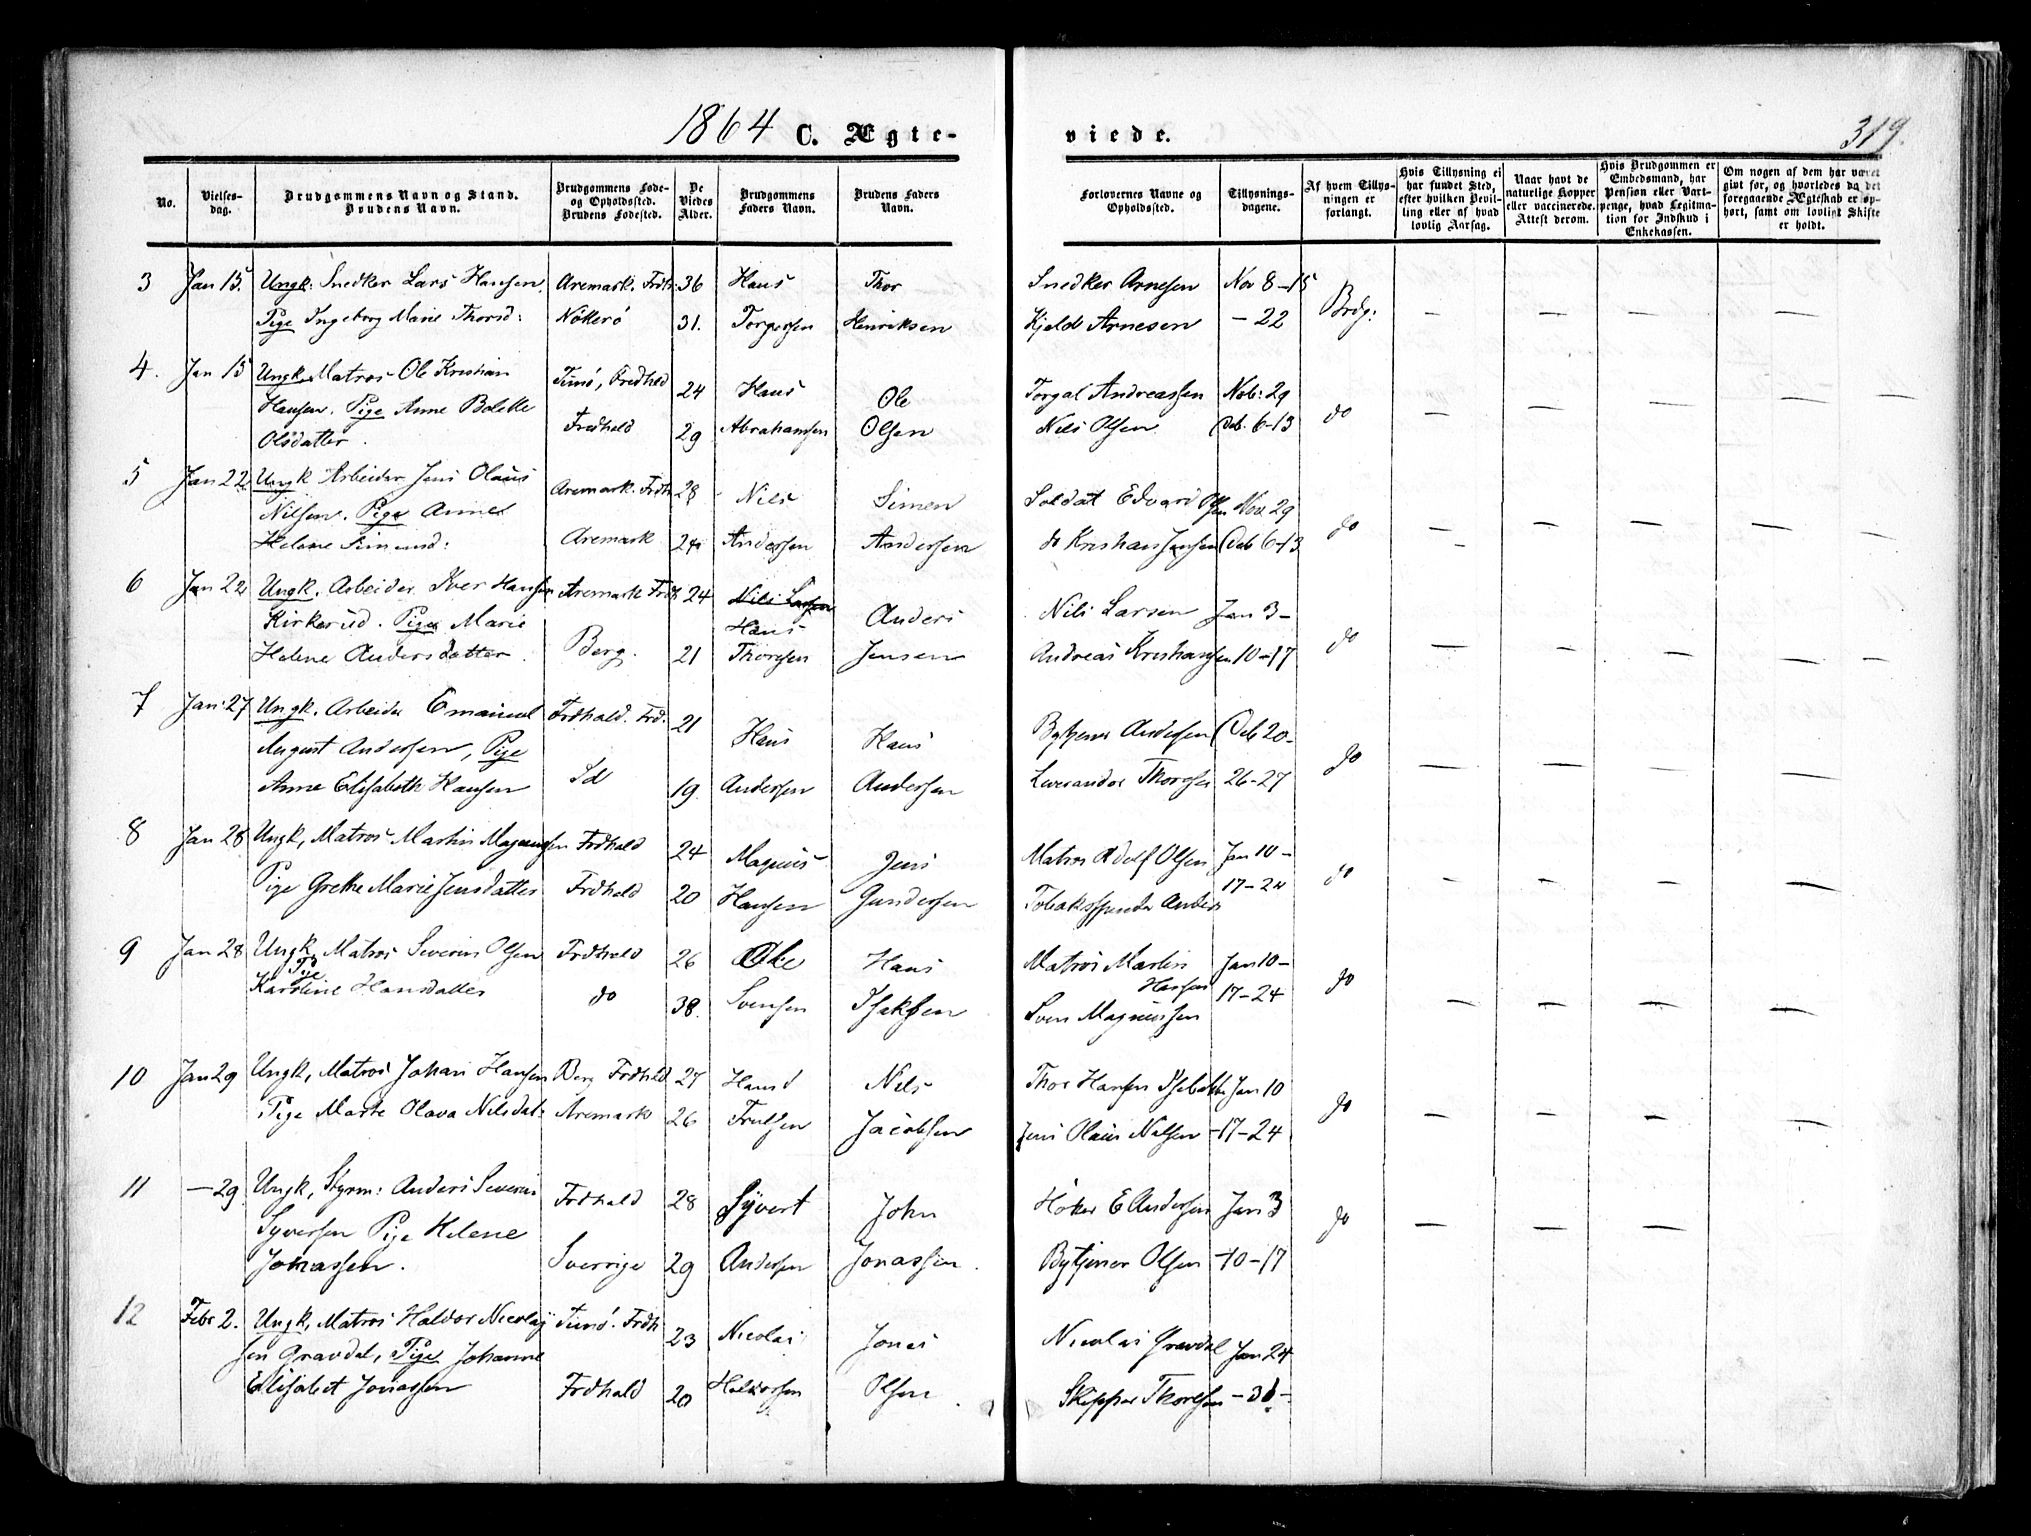 1864 C. Ægte-
viede. 319.
No.
Vielses-
dag.
Brudgommens Navn og Stand.
Brudens Navn.
Brudgommens Føde-
og Opholdssted.
Brudens Fødested.
De
Viedes
Alder.
Brudgommens
Faders Navn.
Brudens Faders
Navn.
Forlovernes Navne og
Opholdssted.
Tillysnings-
dagene.
Af hvem Tillys-
ningen er
forlangt.
Hvis Tillysning ei
har fundet Sted,
efter hvilken Bevil-
ling eller af hvad
lovlig Aarsag.
Naar havt de
naturlige Kopper
eller vaccinerede.
Attest derom.
Hvis Brudgommen er
Embedsmand, har
Pension eller Vart-
penge, hvad Legitima-
tion for Indskud i
Enkekassen.
Om nogen af dem har været
givt før, og hvorledes da det
foregaaende Ægteskab er op-
hørt, samt om lovligt Skifte
er holdt.
3 Jan 15. Ungk: Snedker Lars Hansen. Aremark. Frdh: 36 Hans Thor Snedker Arnesen Nov 8-15 Brdg: — — — —
Pige Ingeborg Marie Thorsd: Nökerö 31. Torgersen Henriksen Kjeld Arnesen — 22
4. Jan 15 Ungk. Matros Ole Kristian Tunö, Fredhld 24 Hans Ole Torgal Andreassen Nob: 29 do — — — — —
Hansen. Pige Anne Bolette Fredhald 29 Abrahamsen Olsen Nils Olsen Deb. 6-13
Olsdatter.
5 Jan 22 Ungk Arbeider Jens Olaus Aremark. Frdh 28 Nils Simen Soldat Edvard Olsen Nov 29 do — — — — —
Nilsen. Pige Anne Aremark 24 Andersen Andersen do Kristian Jensen Deb 6-13 —
Helene Simensd:
6 Jan 22 Ungk. Arbeider Iver Hansen Aremark Frdh 24 Nils Larsen Anders Nils Larsen Jan 3- do — — — — —
Kirkerud. Pige Marie Hans
Helene Andersdatter. Berg. 21 Thoresen Jensen Andreas Kristiansen 10-17
7 Jan: 27 Ungk. Arbeider Emanuel Frdhald. Frd. 21 Hans Hans Bytjener Andersen Deb 20- do — — — —
August Andersen, Pige
Anne Elisabeth Hansen Id 19. Andersen Andersen Leverandør Thoresen 26-27
8 Jan 28 Ungk, Matros Martin Magnussen Frdhald 24 Magnus Jens Matros Adolf Olsen Jan 10- do — — — —
Pige Grethe Marie Jensdatter Frdhald 20 Hansen Gundersen Tobaksspinder Anders 17-24
9 Jan 28 Ungk Matros Severin Olsen Frdhald 26 Ole Hans Matros Martin Jan 10- do — — — —
Pige Hansen 17-24
Karoline Hansdatter do 38. Svensen Isaksen Sven Magnussen
10 Jan 29 Ungk, Matros Johan Hansen Berg Frdhld 27 Hans Nils Thor Hansen Jan 10 do — — — —
Pige Marte Olava Nilsdat: Aremark 26 Trulsen Jacobsen Jens Olaus Nilsen -17-24
11 —29 Ungk, Styrm: Anders Severin Frdhald 28 Syvert John Høker E Andersen Jan 3 do — — —
Syversen Pige Helene
Johnassen. Sverrige 29 Andersen Jonassen. Bytjener Olsen -10-17
12 Febr 2. Ungk, Matros Haldor Nicolay Tunö. Frdh 23 Nicolai Jonas Nicolai Gravdal Jan 24
sen Gravdal, Pige Johanne
Elisabet Jonassen Frdhald 20 Haldorsen Olsen. Skipper Thoresen —31-